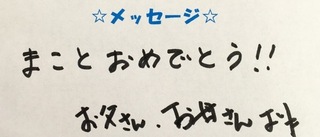 ☆メッセージ☆
まこと おめでとう!!
お父さん、お母さん より